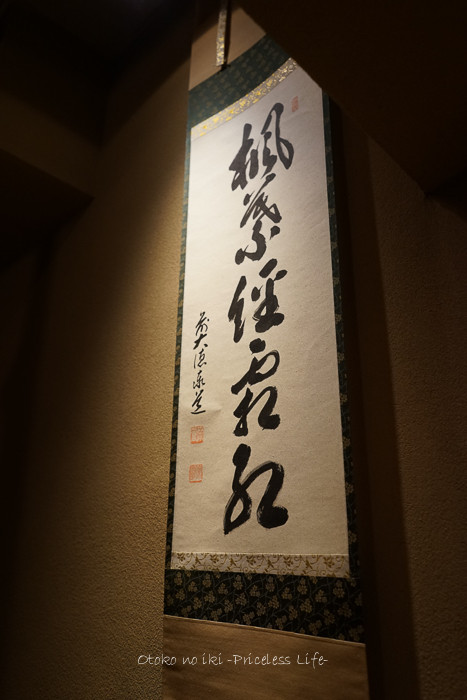 楓葉経霜紅
前大徳
Otoko no iki -Priceless Life-